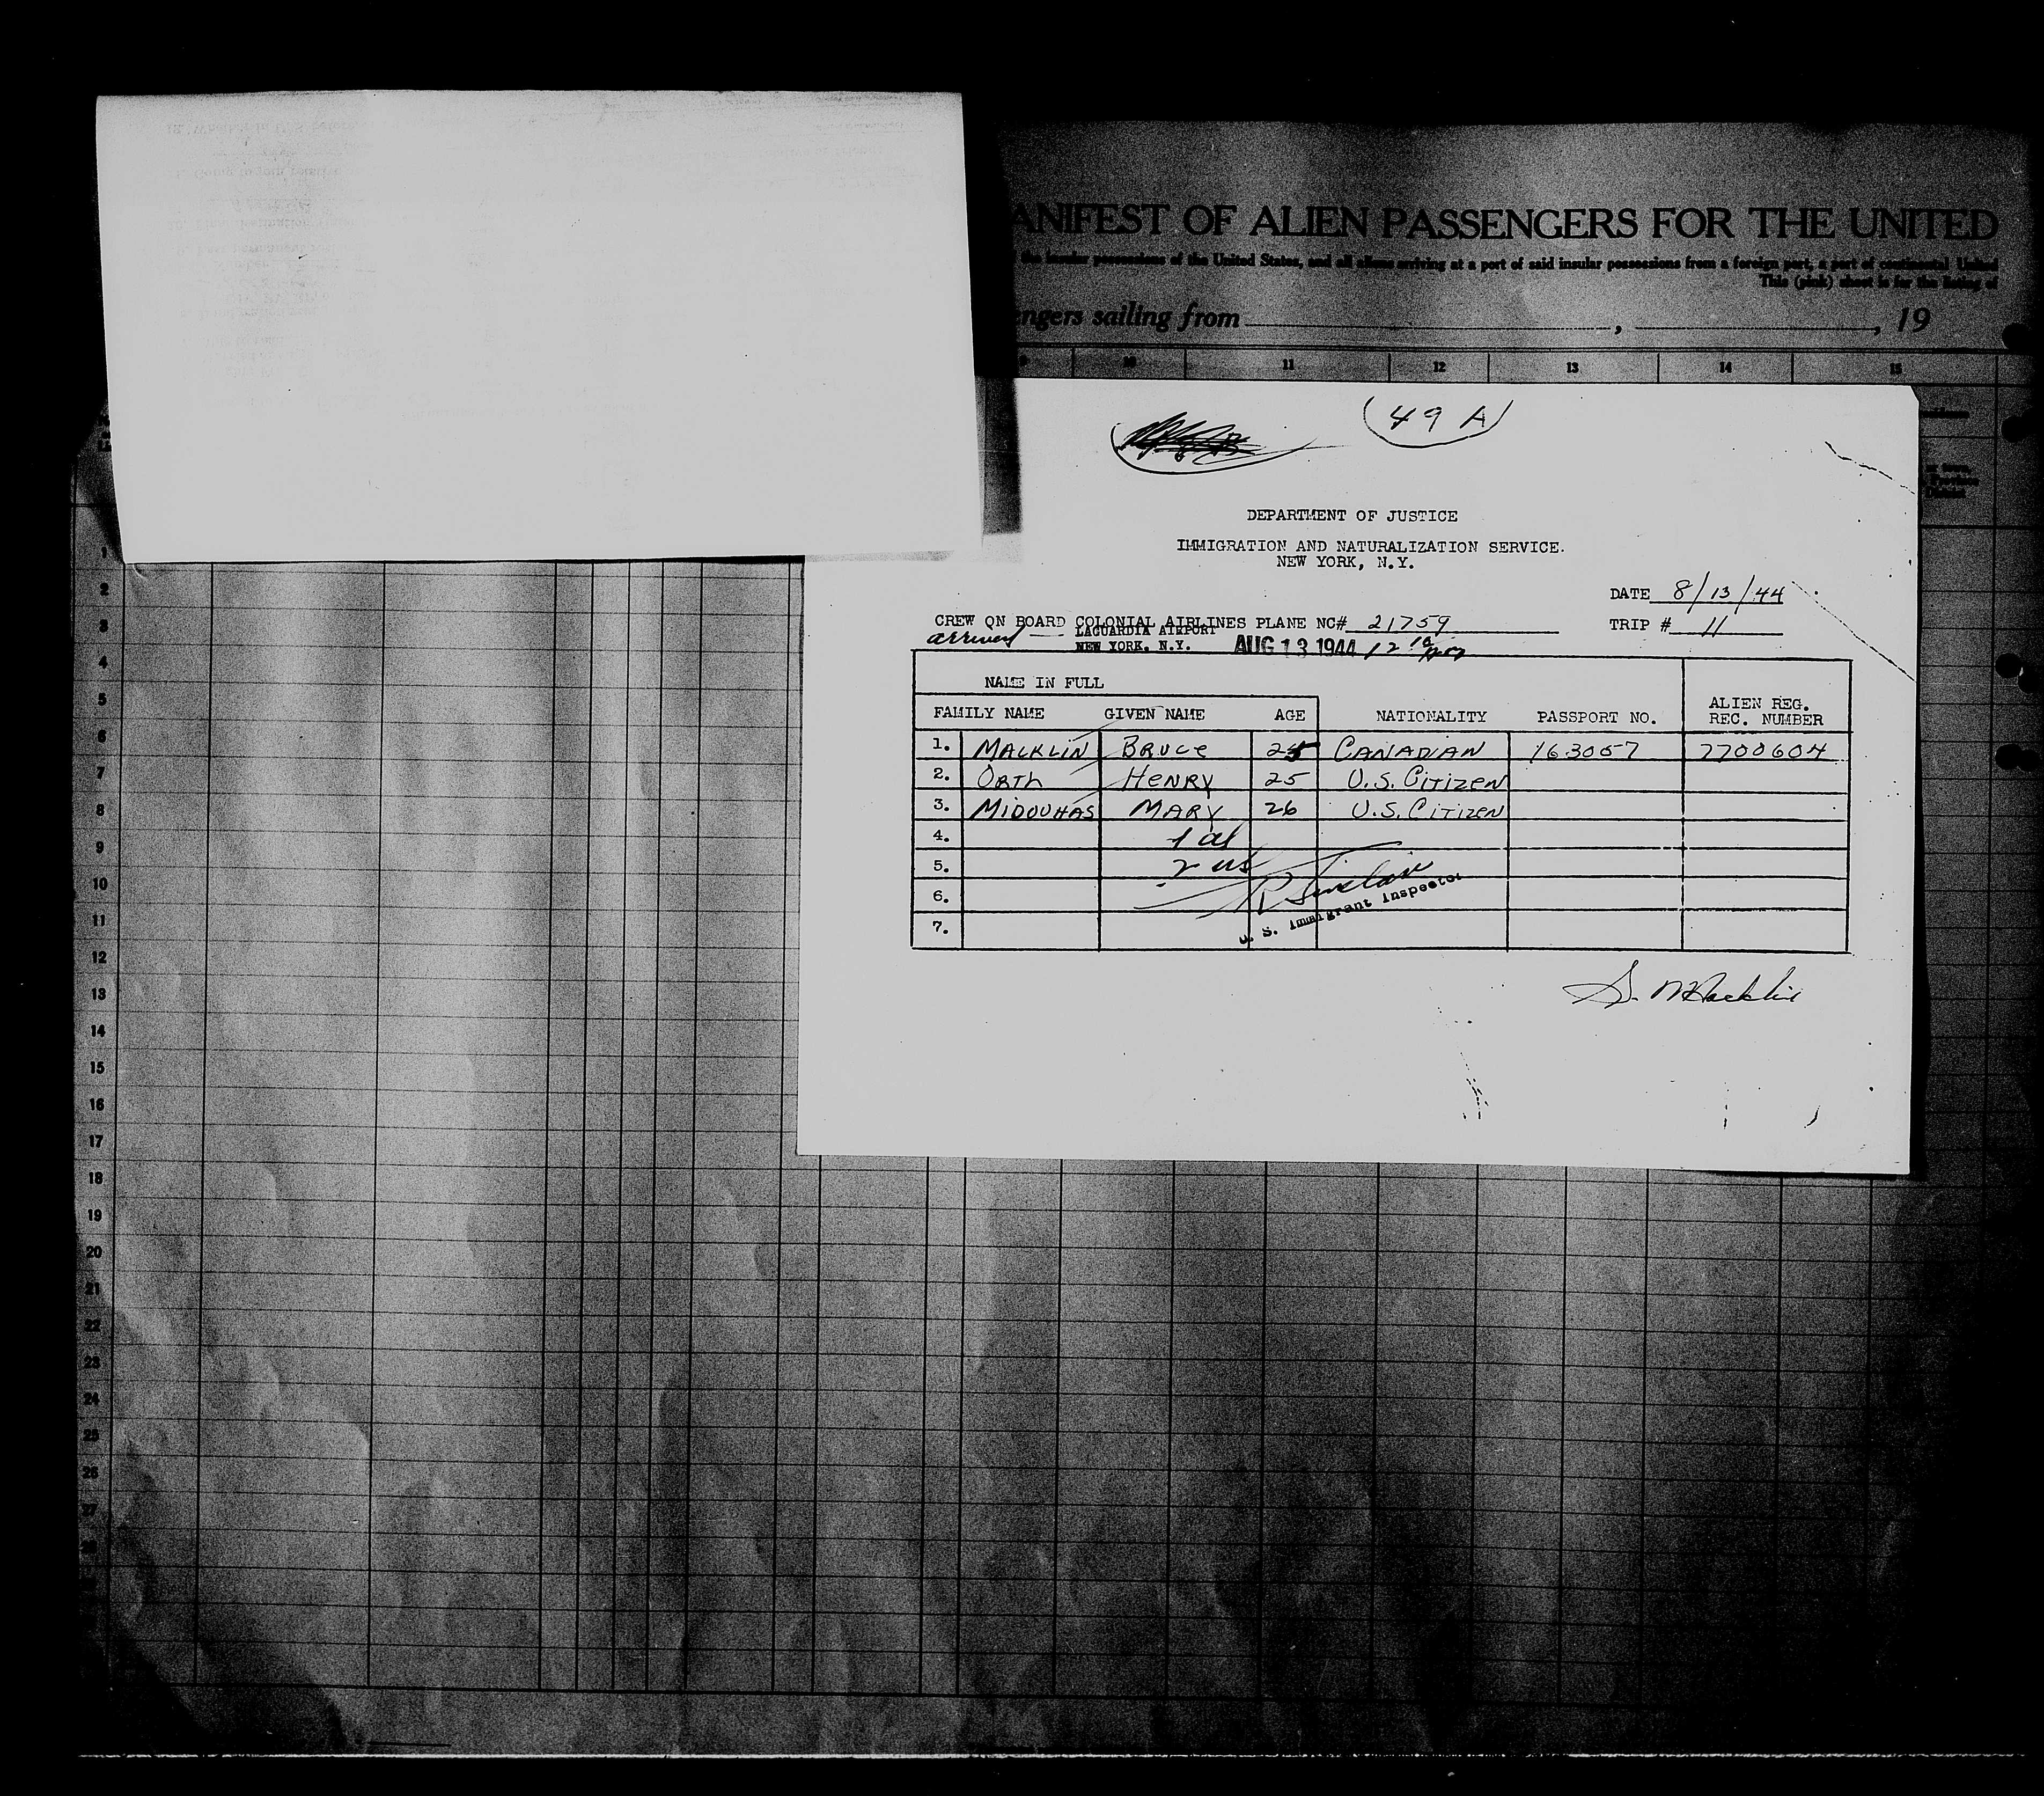 ANIFEST OF ALIEN PASSENGERS FOR THE UNITED
the insular possessions of the United States, and all aliens arriving at a port of said insular possessions from a foreign port, a port of continental United
This (pink) sheet is for the listing of
engers sailing from , , 19
9 10 11 12 13 14 15
(49 A)
DEPARTMENT OF JUSTICE
IMMIGRATION AND NATURALIZATION SERVICE.
NEW YORK, N.Y.
DATE 8/13/44
CREW ON BOARD COLONIAL AIRLINES PLANE NC# 21759 TRIP # 11
arrived — LAGUARDIA AIRPORT
NEW YORK, N.Y. AUG 13 1944 12
NAME IN FULL
FAMILY NAME GIVEN NAME AGE NATIONALITY PASSPORT NO. ALIEN REG. REC. NUMBER
1. MACKLIN BRUCE 25 CANADIAN 163057 7700604
2. ORTH HENRY 25 U.S. CITIZEN
3. MIDOUHAS MARY 26 U.S. CITIZEN
4. 1 al
5. 2 us
6. R Sinclair
U. S. Immigrant Inspector
7.
B. Macklin
1
2
3
4
5
6
7
8
9
10
11
12
13
14
15
16
17
18
19
20
21
22
23
24
25
26
27